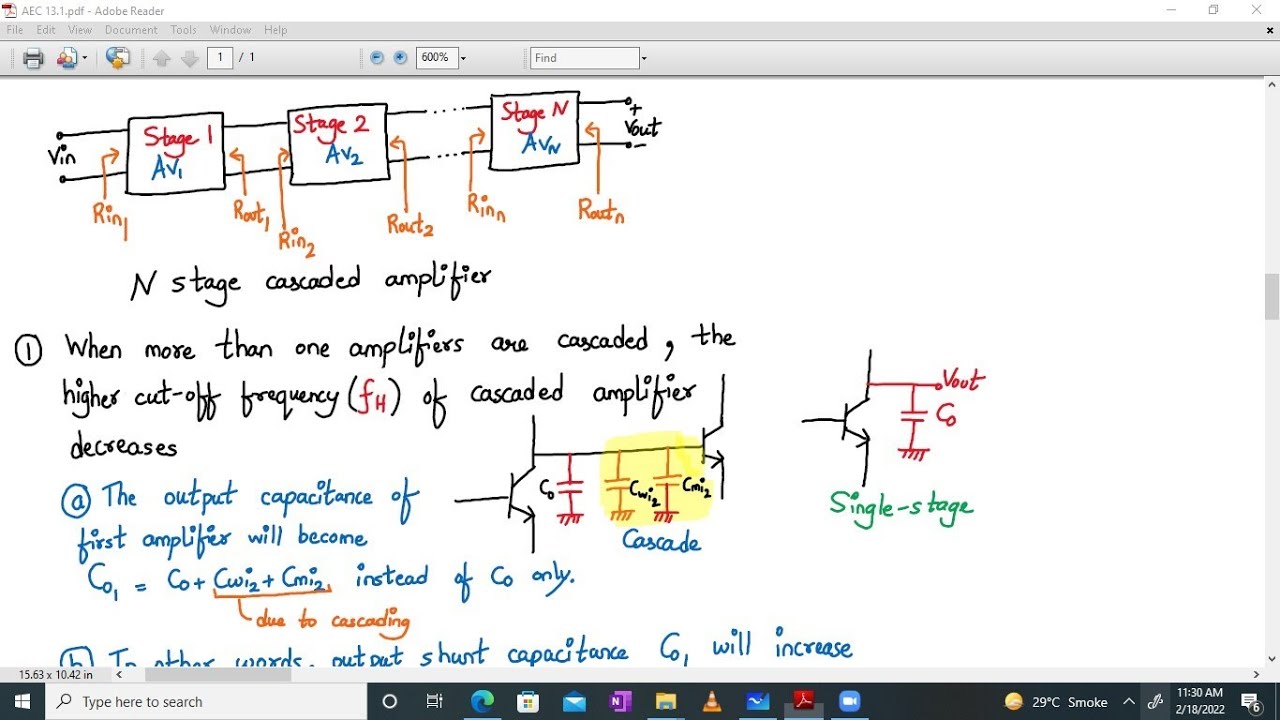 AEC 13.1.pdf - Adobe Reader
File Edit View Document Tools Window Help
1 / 1
600%
Find
Stage 1
Av1
Stage 2
Av2
Stage N
AvN
Vin
+
Vout
-
Rin1
Rout1
Rin2
Rout2
Rinn
Routn
N stage cascaded amplifier
① When more than one amplifiers are cascaded, the
higher cut-off frequency (fH) of cascaded amplifier
decreases
ⓐ The output capacitance of
first amplifier will become
Co1 = Co + Cwi2 + Cmi2 instead of Co only.
due to cascading
Co
Cwi2
Cmi2
Cascade
Vout
Co
Single-stage
ⓑ In other words, output shunt capacitance Co1 will increase
15.63 x 10.42 in
Type here to search
29°C Smoke
11:30 AM
2/18/2022
6